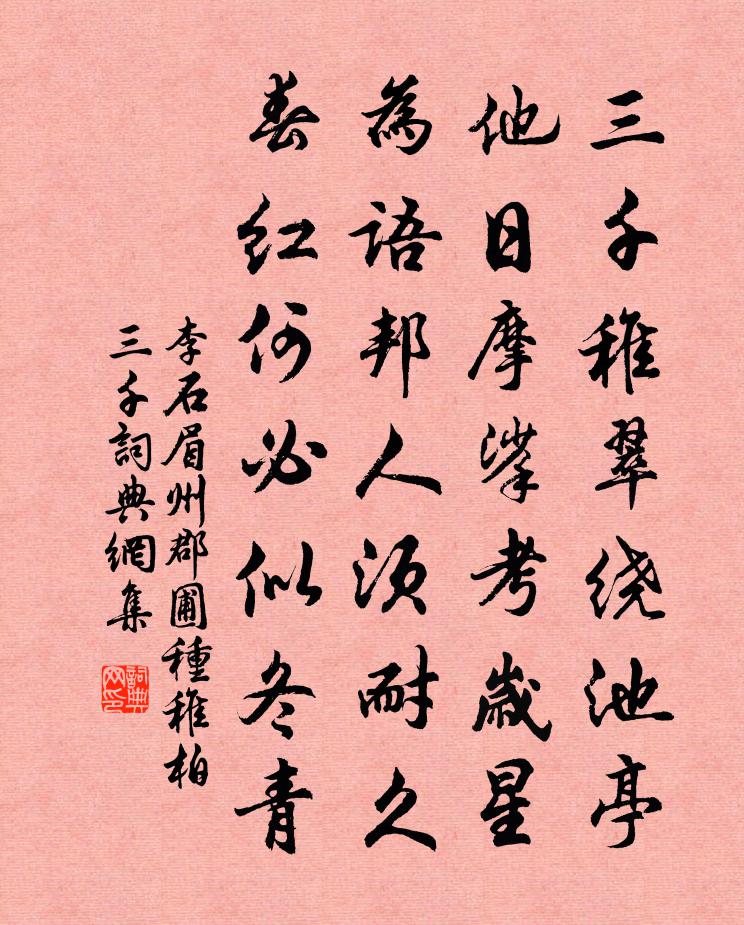 三千稚翠绕池亭
他日摩挲考歲星
為語邦人须耐久
春红何必似冬青
李石眉州郡圃種稚柏
三千詞典網集
詞典网印